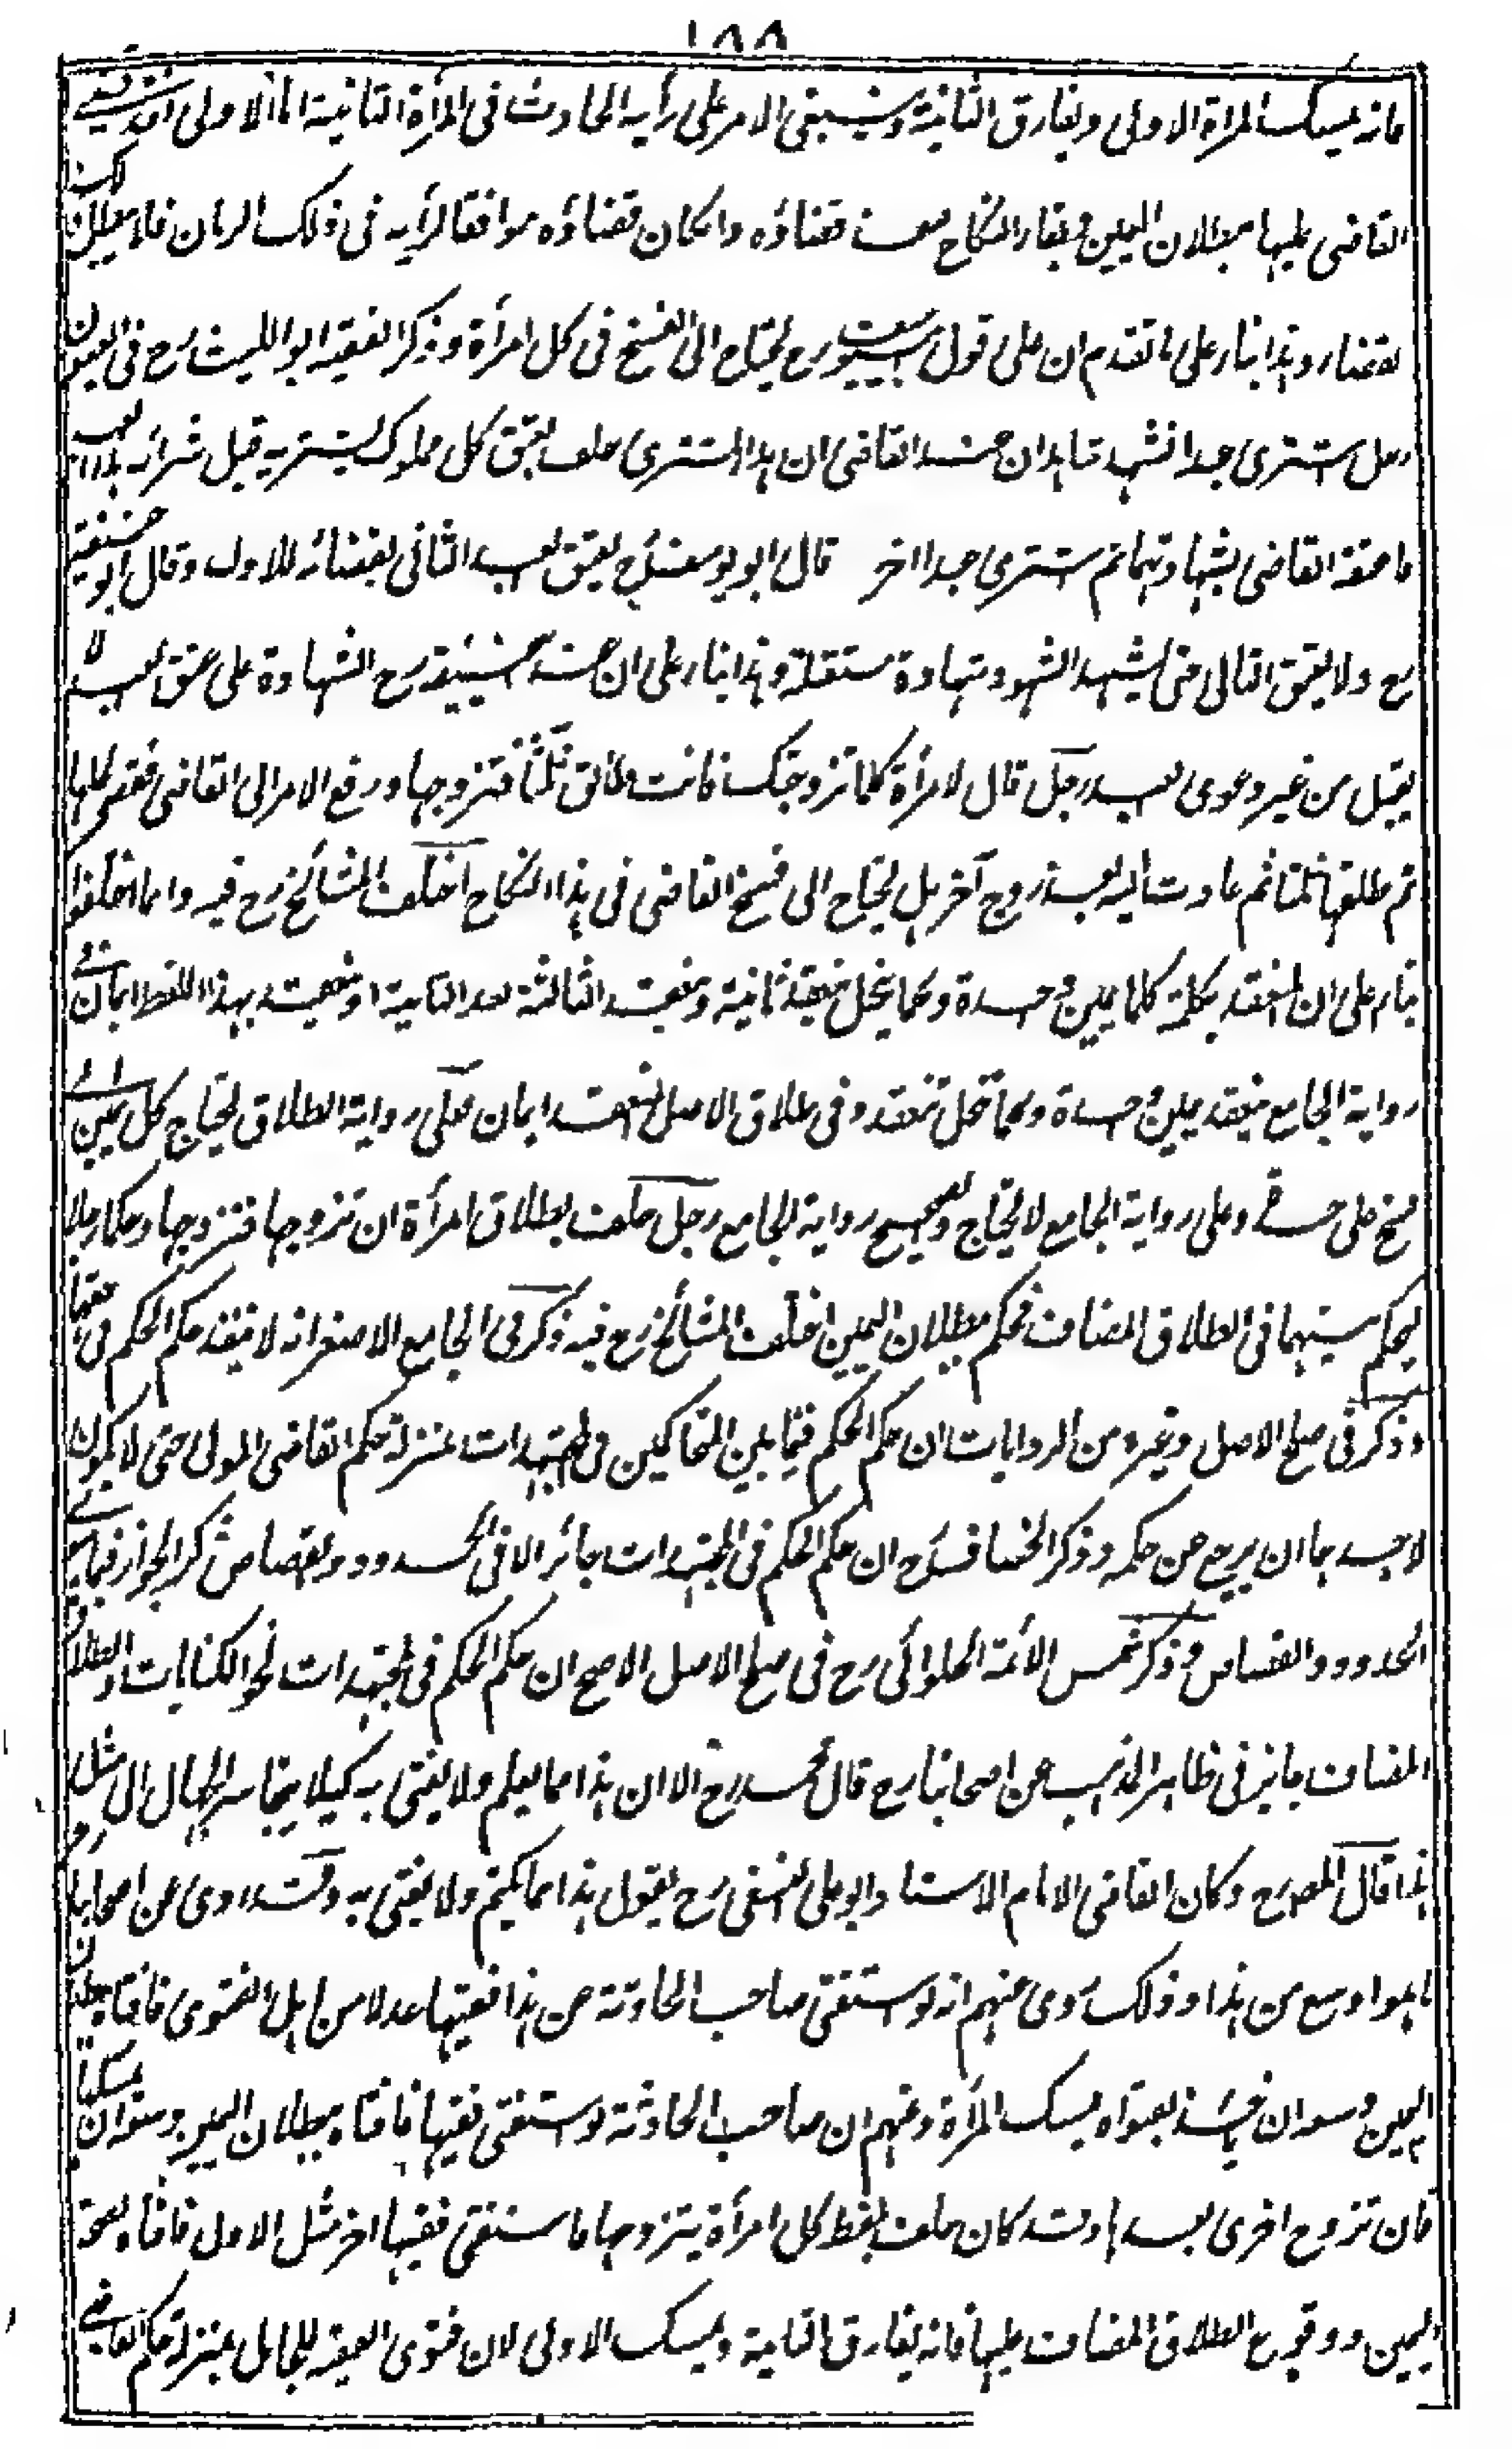 ١٨٨
فانه يمسك المرأة الاولى ويفارق الثانية وينبغى الامر على رأيه الحادث فى المرأة الثانية اما الاولى فقد قضى
القاضى عليها ببطلان اليمين وبقاء النكاح قضاؤه وان كان قضاؤه موافقا لرأيه فى ذلك الزمان فلا يبطل ذلك
لقضاء وهذا بناء على ما تقدم ان على قول رح يحتاج الى الفسخ فى كل امرأة وذكر الفقيه ابو الليث رح فى العيون
رجل اشترى عبدا فشهد شاهدان عند القاضى ان هذا المشترى حلف بعتق كل مملوك يشتريه قبل شرائه هذا العبد
فاعتقه القاضى بشهادتهما ثم اشترى عبدا اخر قال ابو يوسف رح يعتق العبد الثانى بقضائه للاول وقال ابو حنيفة
رح ولا يعتق الثانى حتى يشهد الشهود شهادة مستقلة وهذا بناء على ان عند ابى حنيفة رح الشهادة على عتق العبد لا
يقبل من غير دعوى العبد رجل قال لامرأة كلما تزوجتك فانت طالق ثلثا فتزوجها ورفع الامر الى القاضى فقضى بحلها
ثم طلقها ثلثا ثم عادت اليه بعد زوج آخر هل يحتاج الى فسخ القاضى فى هذا النكاح اختلف المشائخ رح فيه وانما اختلفوا
بناء على ان المنعقد بكلمة كلما يمين واحدة وكلما ينحل ينعقد ثانية وينعقد الثالثة بعد الثانية او ينعقد بهذا اللفظ ايمان فى
رواية الجامع ينعقد يمين واحدة وكلما تنحل تنعقد وفى طلاق الاصل انعقد ايمان فعلى رواية الطلاق يحتاج كل يمين الى
فسخ على حدة وعلى رواية الجامع لا يحتاج والصحيح رواية الجامع رجل حلف بطلاق امرأة ان تزوجها فتزوجها وحكما رجلا
ليحكم بينهما فى الطلاق المضاف فحكم ببطلان اليمين اختلف المشائخ رح فيه ذكر فى الجامع الاصغر انه لا ينفذ حكم الحكم فى حقهما
وذكر فى صلح الاصل وغيره من الروايات ان حكم الحكم فيما بين المتحاكمين فى المجتهدات بمنزلة حكم القاضى المولى حتى لا يكون
لاحدهما ان يرجع عن حكمه وذكر الخصاف رح ان حكم الحكم فى المجتهدات جائز الا فى الحدود والقصاص ذكر الجواز فيما سوى
الحدود والقصاص وذكر شمس الائمة الحلوائى رح فى صلح الاصل الاصح ان حكم الحكم فى المجتهدات نحو الكنايات والطلاق
المضاف جايز فى ظاهر المذهب عن اصحابنا رح قال محمد رح الا ان هذا مما يعلم ولا يفتى به كيلا يتجاسر الجهال الى مثل
هذا قال المصرح وكان القاضى الامام الاستاد ابو على النسفى رح يقول هذا مما يكتم ولا يفتى به وقد روى عن اصحابنا
ما هو اوسع من هذا وذلك روى عنهم انه لو استفتى صاحب الحادثة عن هذا فقيها عدلا من اهل الفتوى فافتاه ببطلان
اليمين وسعه ان يأخذ بفتواه ويمسك المرأة وعنهم ان صاحب الحادثة لو استفتى فقيها فافتاه ببطلان اليمين وسعه ان يمسكها
فان تزوج اخرى بعدها وقد كان حلف بلفظ كل امرأة يتزوجها فاستفتى فقيها اخر مثل الاول فافتاه بصحة
اليمين ووقوع الطلاق المضاف عليها فانه يفارق الثانية ويمسك الاولى لان فتوى الفقيه للجاهل بمنزلة حكم القاضى